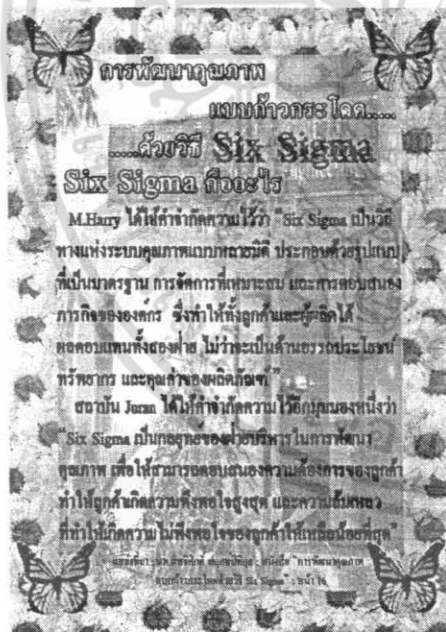 การพัฒนาคุณภาพ
แบบก้าวกระโดด.....
.....ด้วยวิธี Six Sigma
Six Sigma คืออะไร
M.Harry ได้ให้คำจำกัดความไว้ว่า "Six Sigma เป็นวิถี
ทางแห่งระบบคุณภาพแบบหลายมิติ ประกอบด้วยรูปแบบ
ที่เป็นมาตรฐาน การจัดการที่เหมาะสม และการตอบสนอง
ภารกิจขององค์กร ซึ่งทำให้ทั้งลูกค้าและผู้ผลิตได้
ผลตอบแทนทั้งสองฝ่าย ไม่ว่าจะเป็นด้านอรรถประโยชน์
ทรัพยากร และคุณค่าของผลิตภัณฑ์"
สถาบัน Juran ได้ให้คำจำกัดความไว้อีกมุมมองหนึ่งว่า
"Six Sigma เป็นกลยุทธ์ของฝ่ายบริหารในการพัฒนา
คุณภาพ เพื่อให้สามารถตอบสนองความต้องการของลูกค้า
ทำให้ลูกค้าเกิดความพึงพอใจสูงสุด และความล้มเหลว
ที่ทำให้เกิดความไม่พึงพอใจของลูกค้าให้เหลือน้อยที่สุด"
แหล่งที่มา : หนังสือ "การพัฒนาคุณภาพ
แบบก้าวกระโดดด้วยวิธี Six Sigma" : หน้า 16